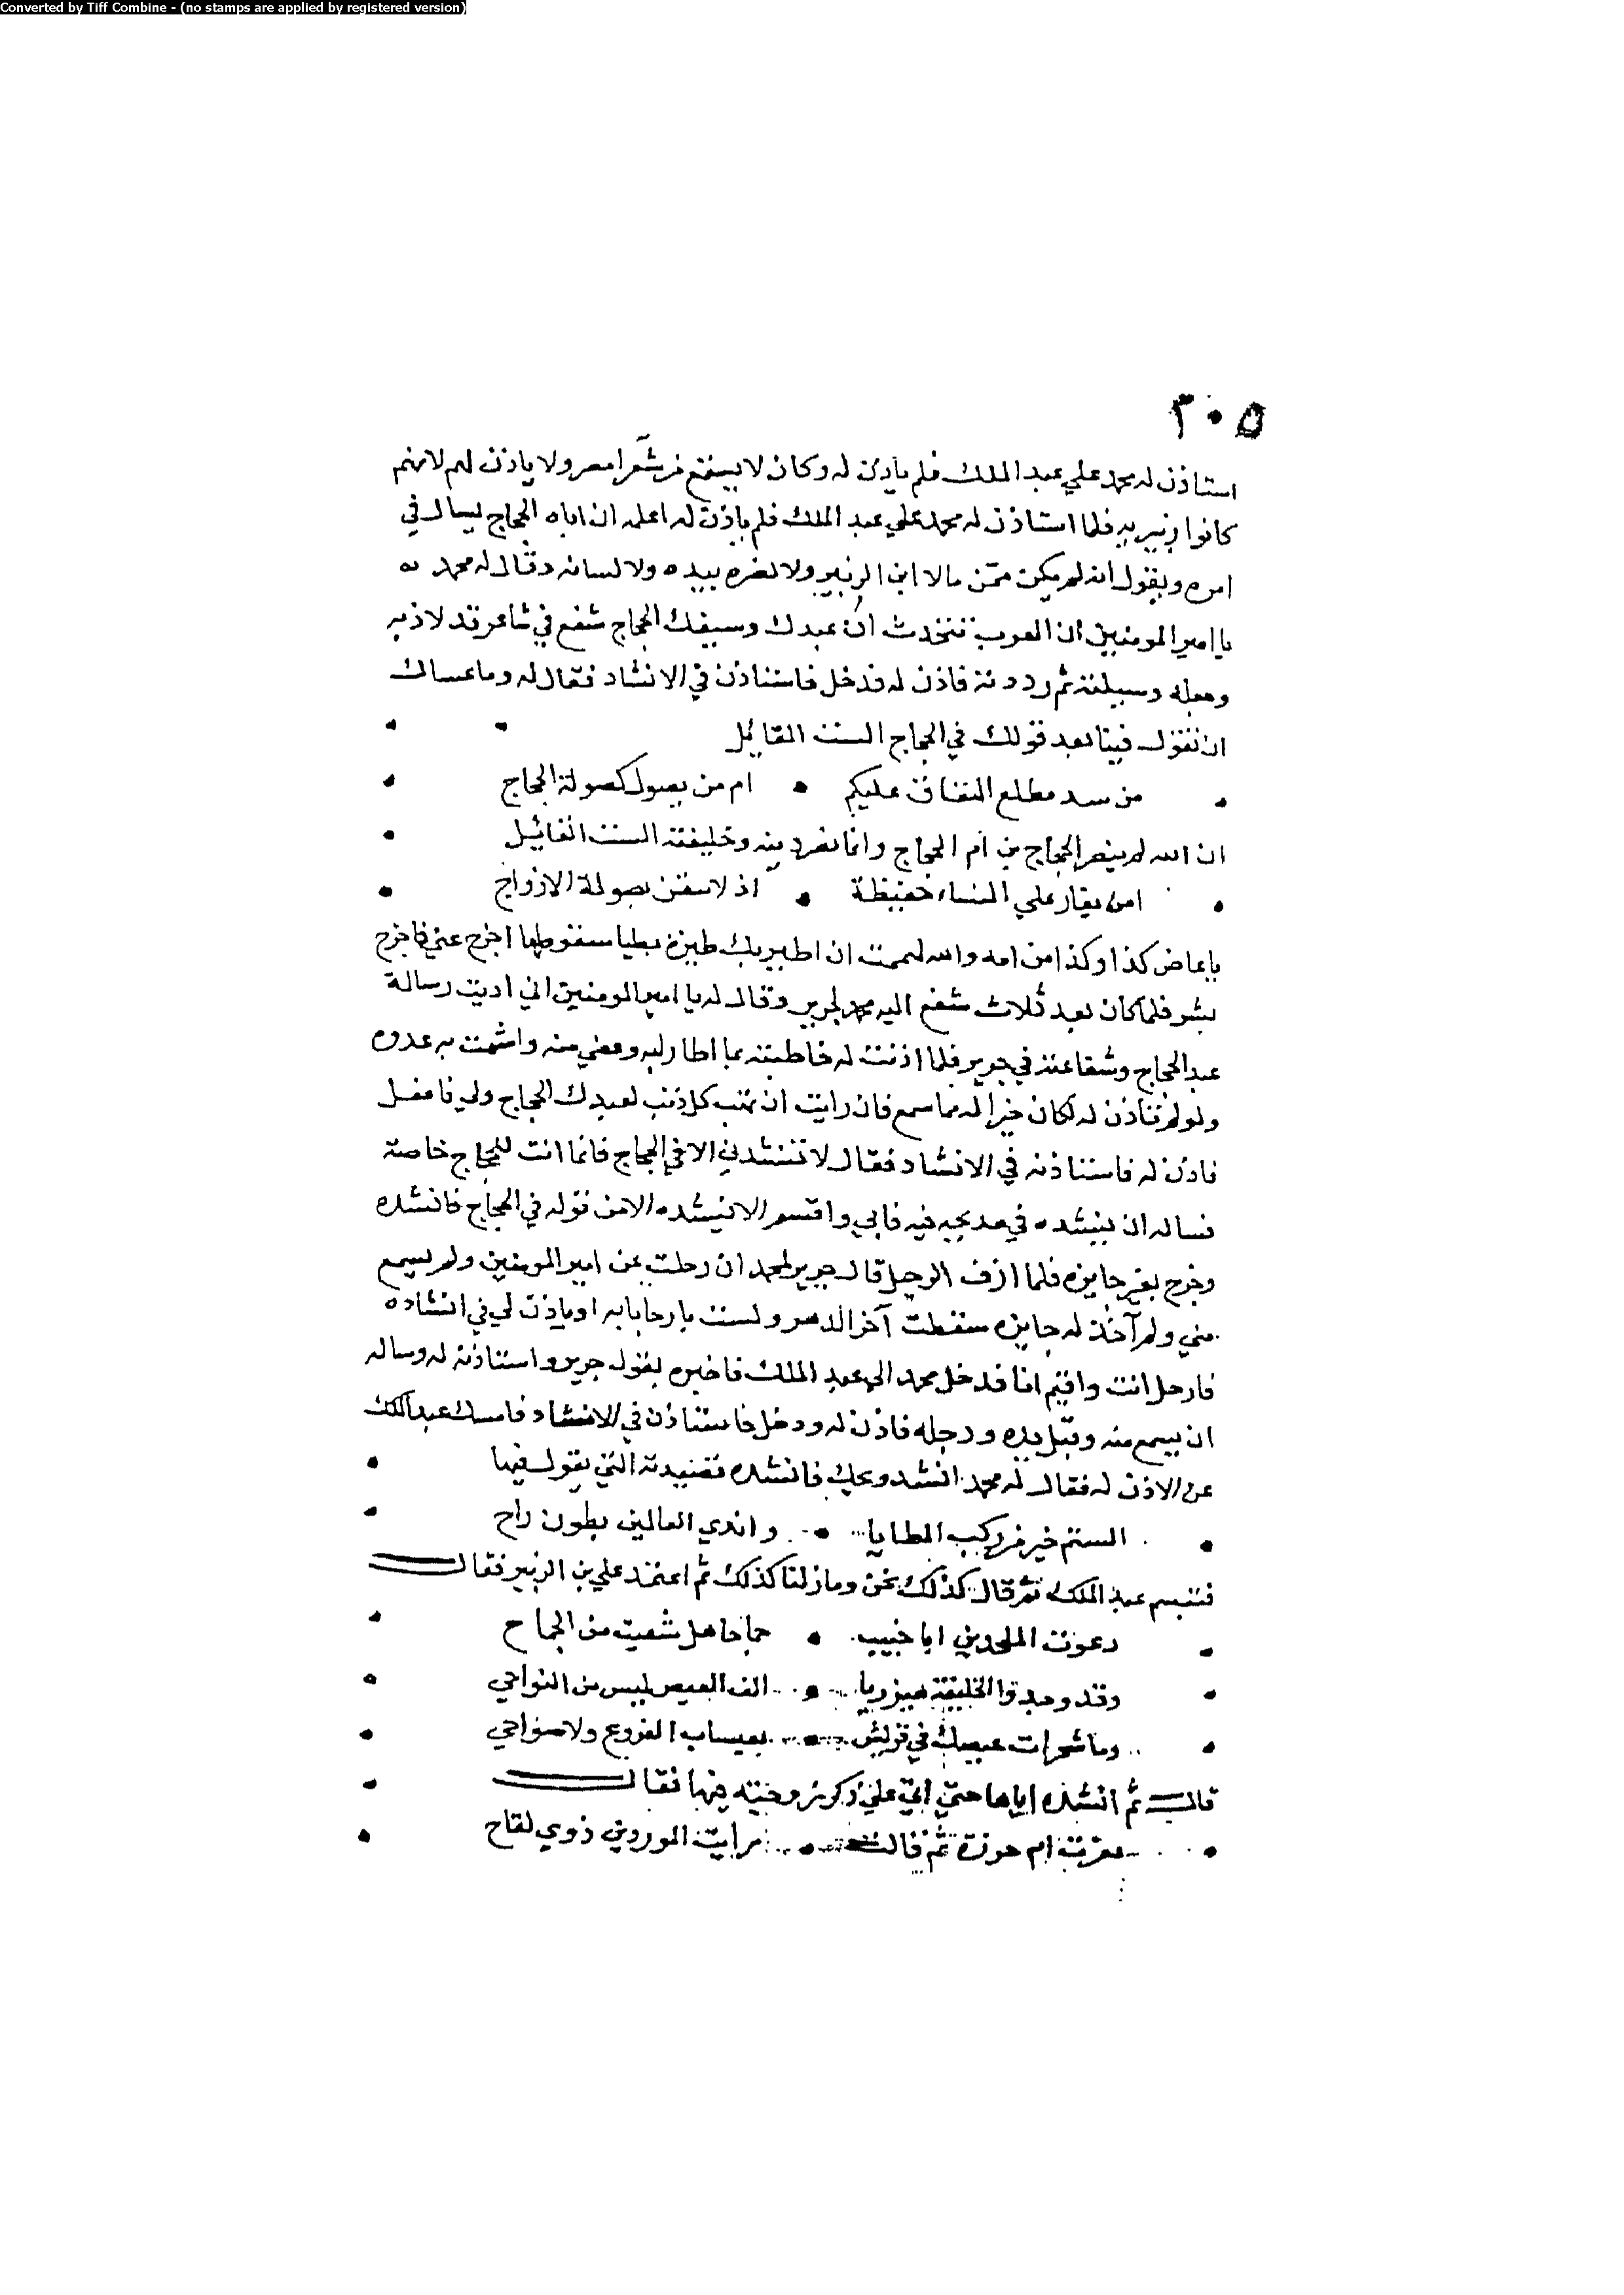 Converted by Tiff Combine - (no stamps are applied by registered version)
٣٠٥
استاذن له محمد علي عبد الملك فلم ياذن له وكان لا يسمع من شعرا مصر ولا ياذن لهم لانهم
كانوا زبيريه فلما استاذن له محمد علي عبد الملك فلم ياذن له اعلمه ان اباه الحجاج يسال في
امره ويقول انه لم يكن ممن مالا ابن الزبير ولا نصره بيده ولا لسانه وقال له محمد
يا امير المومنين ان العرب تتحدث ان عبدك وسيفك الحجاج شفع في شاعر قد لاذ به
وجعله وسيلته ثم رددته فاذن له فدخل فاستاذن في الانشاد فقال له وما عساك
ان تقول فينا بعد قولك في الحجاج الست القائل
من سد مطلع النفاق عليكم • ام من يصول كصولة الحجاج
ان الله لم ينصر الحجاج وانما نصر دينه وخليفته الست القائل
امن يغار علي النساء حفيظة • اذ لا يثقن بصولة الازواج
يا عاض كذا وكذا من امه والله لهممت ان اطير بك طيرة بطيا سقوطها اخرج عني فاخرج
بشر فلما كان بعد ثلاث شفع اليه محمد لجرير وقال له يا امير المومنين اني اديت رسالة
عبدك الحجاج وشفاعته في جرير فلما اذنت له خاطبته بما اطار لبه وغض منه واشمت به عدوه
ولو لم تاذن له لكان خيرا له مما سمع فان رايت ان تهب كل ذنب لعبدك الحجاج ولي فافعل
فاذن له فاستاذنه في الانشاد فقال لا تنشدني الا في الحجاج فانما انت للحجاج خاصة
فساله ان ينشده في مديحه فيه فابي واقسم الا ينشده الا من قوله في الحجاج فانشده
وخرج بغير جايزه فلما ازف الرحيل قال جرير لمحمد ان رحلت عن امير المومنين ولم يسمع
مني ولم آخذ له جايزه سقطت آخر الدهر ولست بارحا بابه او ياذن لي في انشاده
فارحل انت واقيم انا فدخل محمد الي عبد الملك فاخبره بقول جرير واستاذنه له وساله
ان يسمع منه وقبل يده ورجله فاذن له ودخل فاستاذن في الانشاد فامسك عبد الملك
عن الاذن له فقال له محمد انشد ويحك فانشده قصيدته التي يقول فيها
الستم خير من ركب المطايا • واندي العالمين بطون راح
فتبسم عبد الملك ثم قال كذلك نحن وما زلنا كذلك ثم اعتمد علي بن الزبير فقال
دعوت الملحدين ابا خبيب • جماحا هل شفيت من الجماح
وقد وجدوا الخليفة هبرزيا • الف العيص ليس من النواحي
وما شجرات عيصك في قريش • بعيساب الفروع ولا ضواحي
قال ثم انشده اياها حتي اتي علي ذكر زوجته فيها فقال
تعزت ام حزرة ثم قالت • رايت الموردين ذوي لقاح